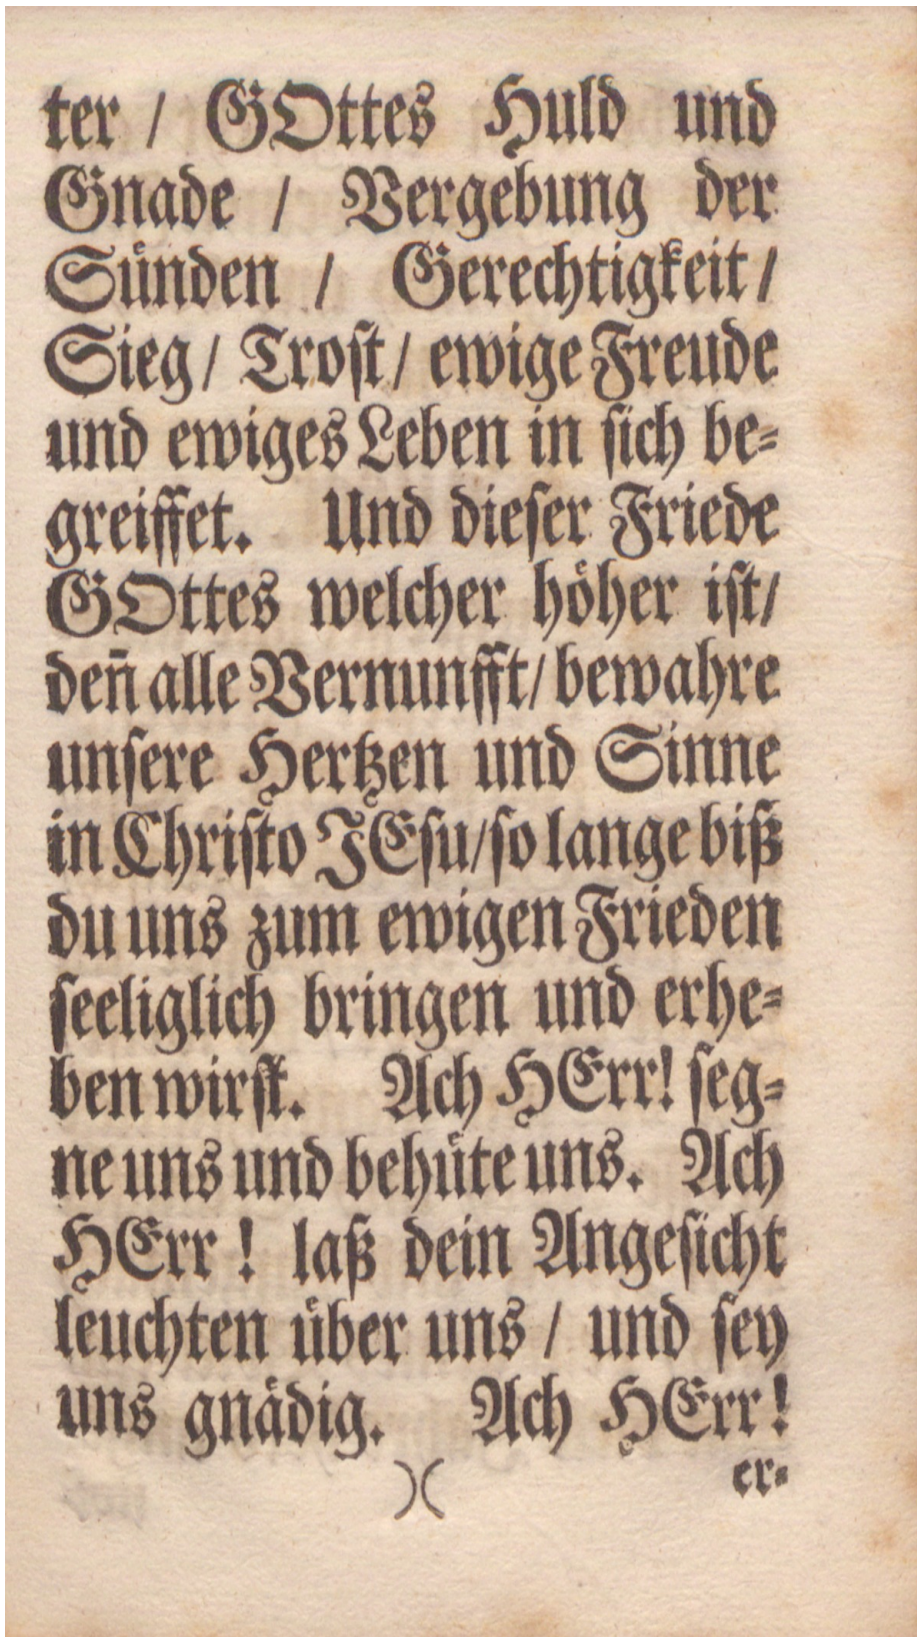 ter / GOttes Huld und
Gnade / Vergebung der
Sünden / Gerechtigkeit /
Sieg / Trost / ewige Freude
und ewiges Leben in sich be-
greiffet. Und dieser Friede
GOttes welcher höher ist/
den̄ alle Vernunfft / bewahre
unsere Hertzen und Sinne
in Christo JEsu / so lange biß
du uns zum ewigen Frieden
seeliglich bringen und erhe-
ben wirst. Ach HErr! seg-
ne uns und behüte uns. Ach
HErr! laß dein Angesicht
leuchten über uns / und sey
uns gnädig. Ach HErr!
)( er-